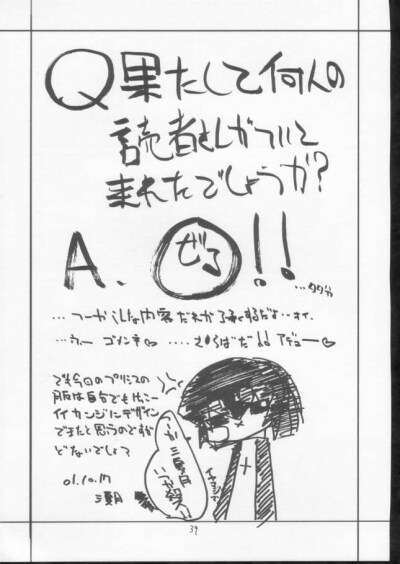 Q 果たして何人の
読者さんがついて
来れたでしょうか?
A. ぜろ!!
…タブン
…つーかこんな内容だれが了承するだよ…オイ.
…うー ゴメンネ♡ ….さらばだ!! アデュー♡
でも今回のプリシスの
服は自分でもけっこー
イイカンジにデザイン
できたと思うのですが
どないでしょ?
01.10.17
39